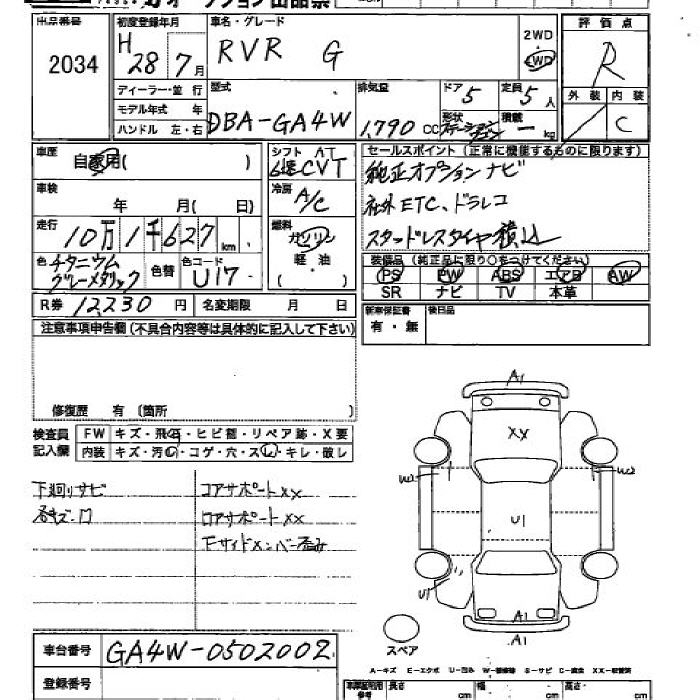 オークション出品票
出品番号 初度登録年月 車名・グレード 評価点
2034 H28 7月 RVR G 2WD 4WD R
ディーラー・並行 型式 排気量 ドア 5 定員 5人 外装 内装
モデル年式 年 DBA-GA4W 1,790 CC 形状 積載 ー kg C
ハンドル 左・右
車歴 自家用( ) シフト AT セールスポイント(正常に機能するものに限ります)
6速CVT 純正オプション ナビ
車検 年 月( 日) 冷房 A/C 社外ETC、ドラレコ
走行 10万1千627km 燃料 ガソリン スタッドレスタイヤ積込
軽油 ( )
色 チタニウムグレーメタリック 色替 色コード U17 装備品(純正品に限り○をつけてください)
PS PW ABS エアB AW
SR ナビ TV 本革
R券 12230円 名変期限 月 日 新車保証書 有・無 後日品
注意事項申告欄(不具合内容等は具体的に記入して下さい)
修復歴 有 〔箇所 〕
検査員 FW キズ・飛石・ヒビ割・リペア跡・X要
記入欄 内装 キズ・汚レ・コゲ・穴・スレ・キレ・破レ
下廻りサビ コアサポートXX
各キズ・凹 ロアサポートXX
下サイドメンバー歪み
A1
XX
W2 W2
U1
U1
A1
A1
スペア
車台番号 GA4W-0502002
A-キズ E-エクボ U-凹み W-補修跡 S-サビ C-腐食 XX-交換済
登録番号 長さ cm 幅 cm 高さ cm